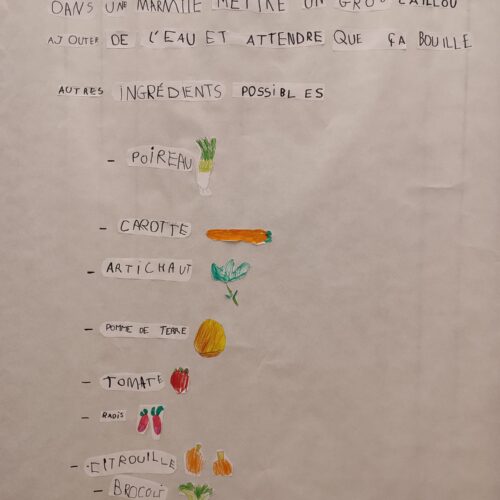 DANS UNE MARMITE METTRE UN GROS CAILLOU
AJOUTER DE L'EAU ET ATTENDRE QUE ÇA BOUILLE
AUTRES INGRÉDIENTS POSSIBLES
- POIREAU
- CAROTTE
- ARTICHAUT
- POMME DE TERRE
- TOMATE
- RADIS
- CITROUILLE
- BROCOLI